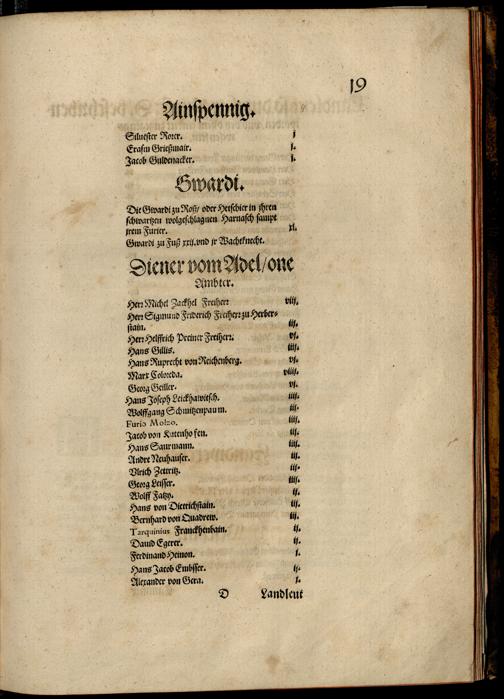 19
Ainspennig.
Siluester Rorer. j
Erasm Grießmair. j.
Jacob Guldenacker. j.
Gwardi.
Die Gwardi zu Roß/ oder Hetschier in jhren
schwartzen wolgeschlagnen Harnasch sampt
jrem Furier. xl.
Gwardi zu Fuß xxij.vnd jr Wachtknecht.
Diener vom Adel/one
Ambter.
Herr Michel Zackhel Freiherr viij.
Herr Sigmund Friderich Freiherr zu Herber-
stain. iij.
Herr Helffrich Preiner Freiherr. vj.
Hans Gillis. iiij.
Hans Ruprecht von Reichenberg. vj.
Marx Coloreda. viiij.
Georg Geiller. vj.
Hans Joseph Leickhawitsch. iiij.
Wolffgang Schnitzenpaum. iij.
Furio Molzo. iiij.
Jacob von Kutenhofen. iij.
Hans Saurmann. iiij.
Andre Neuhauser. iij.
Vlrich Zetteritz. iij.
Georg Leisser. iij.
Wolff Fatzy. ij.
Hans von Dietrichstain. iij.
Bernhard von Quadrew. iij.
Tarquinius Franckhenbain. ij.
Dauid Egerer. ij.
Ferdinand Heinon. j.
Hans Jacob Embsser. ij.
Alexander von Gera. j.
D Landleut